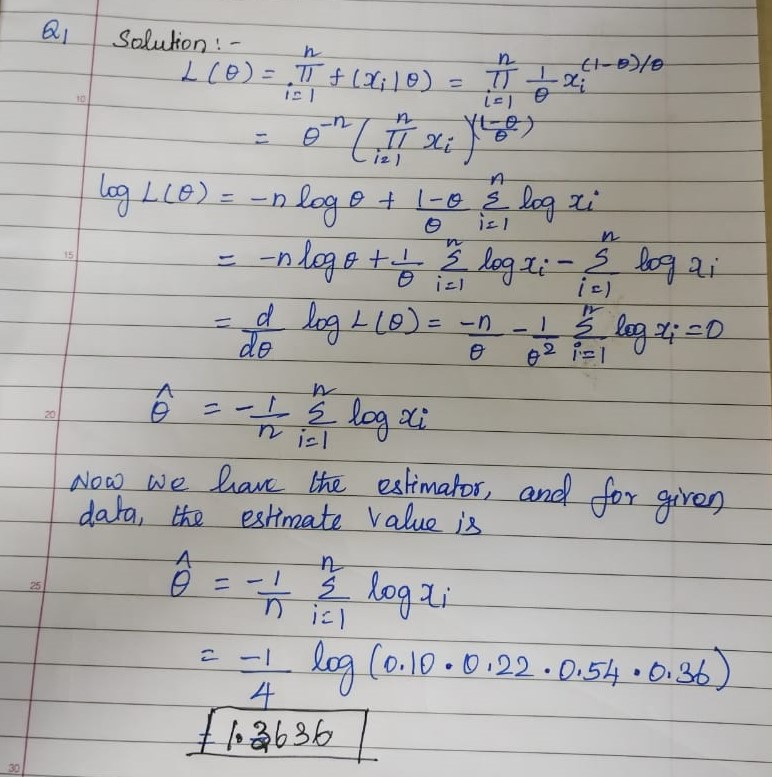 Q1 Solution :-
L(θ) = n∏i=1 f(xi|θ) = n∏i=1 1/θ xi^(1-θ)/θ
= θ^-n (n∏i=1 xi)^(1-θ/θ)
log L(θ) = -n log θ + 1-θ/θ nΣi=1 log xi
= -n log θ + 1/θ nΣi=1 log xi - nΣi=1 log xi
= d/dθ log L(θ) = -n/θ - 1/θ² nΣi=1 log xi = 0
θ̂ = -1/n nΣi=1 log xi
Now we have the estimator, and for given
data, the estimate value is
θ̂ = -1/n nΣi=1 log xi
= -1/4 log (0.10 · 0.22 · 0.54 · 0.36)
= 1.3636
10
15
20
25
30